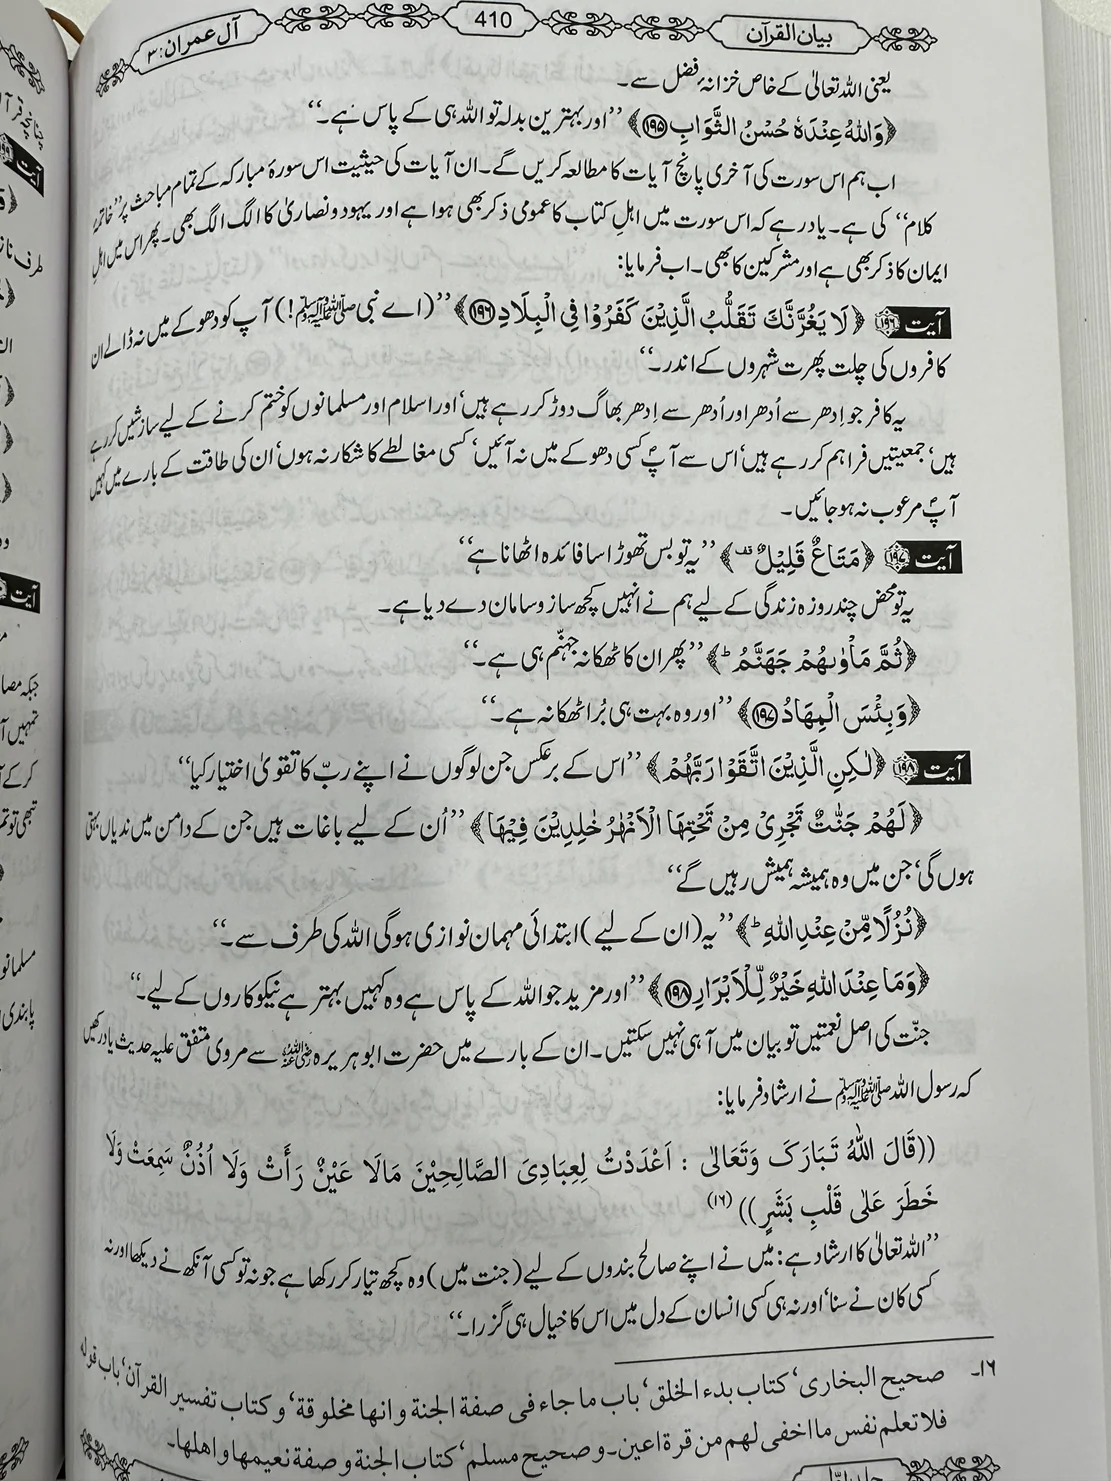 بیان القرآن
410
آل عمران: ۳
یعنی اللہ تعالیٰ کے خاص خزانۂ فضل سے۔
﴿وَاللّٰهُ عِنْدَهٗ حُسْنُ الثَّوَابِ ﴿۱۹۵﴾﴾ ’’اور بہترین بدلہ تو اللہ ہی کے پاس ہے۔‘‘
اب ہم اس سورت کی آخری پانچ آیات کا مطالعہ کریں گے۔ ان آیات کی حیثیت اس سورۂ مبارکہ کے تمام مباحث پر ’’خاتمۂ
کلام‘‘ کی ہے۔ یاد رہے کہ اس سورت میں اہلِ کتاب کا عمومی ذکر بھی ہوا ہے اور یہود و نصاریٰ کا الگ الگ بھی۔ پھر اس میں اہلِ
ایمان کا ذکر بھی ہے اور مشرکین کا بھی۔ اب فرمایا:
آیت ۱۹۶ ﴿لَا يَغُرَّنَّكَ تَقَلُّبُ الَّذِيْنَ كَفَرُوْا فِي الْبِلَادِ ﴿۱۹۶﴾﴾ ’’(اے نبی ﷺ!) آپ کو دھوکے میں نہ ڈالے ان
کافروں کی چلت پھرت شہروں کے اندر۔‘‘
یہ کافر جو اِدھر سے اُدھر اور اُدھر سے اِدھر بھاگ دوڑ کر رہے ہیں‘ اور اسلام اور مسلمانوں کو ختم کرنے کے لیے سازشیں کر رہے
ہیں‘ جمعیتیں فراہم کر رہے ہیں‘ اس سے آپؐ کسی دھوکے میں نہ آئیں‘ کسی مغالطے کا شکار نہ ہوں‘ ان کی طاقت کے بارے میں کہیں
آپؐ مرعوب نہ ہو جائیں۔
آیت ۱۹۷ ﴿مَتَاعٌ قَلِيْلٌ ۫﴾ ’’یہ تو بس تھوڑا سا فائدہ اٹھانا ہے‘‘
یہ تو محض چند روزہ زندگی کے لیے ہم نے انہیں کچھ ساز و سامان دے دیا ہے۔
﴿ثُمَّ مَاْوٰىهُمْ جَهَنَّمُ ؕ﴾ ’’پھر ان کا ٹھکانہ جہنّم ہی ہے۔‘‘
﴿وَبِئْسَ الْمِهَادُ ﴿۱۹۷﴾﴾ ’’اور وہ بہت ہی بُرا ٹھکانہ ہے۔‘‘
آیت ۱۹۸ ﴿لٰكِنِ الَّذِيْنَ اتَّقَوْا رَبَّهُمْ﴾ ’’اس کے برعکس جن لوگوں نے اپنے ربّ کا تقویٰ اختیار کیا‘‘
﴿لَهُمْ جَنّٰتٌ تَجْرِيْ مِنْ تَحْتِهَا الْاَنْهٰرُ خٰلِدِيْنَ فِيْهَا﴾ ’’اُن کے لیے باغات ہیں جن کے دامن میں ندیاں بہتی
ہوں گی‘ جن میں وہ ہمیشہ ہمیش رہیں گے‘‘
﴿نُزُلًا مِّنْ عِنْدِ اللّٰهِ ؕ﴾ ’’یہ (ان کے لیے) ابتدائی مہمان نوازی ہوگی اللہ کی طرف سے۔‘‘
﴿وَمَا عِنْدَ اللّٰهِ خَيْرٌ لِّلْاَبْرَارِ ﴿۱۹۸﴾﴾ ’’اور مزید جو اللہ کے پاس ہے وہ کہیں بہتر ہے نیکوکاروں کے لیے۔‘‘
جنّت کی اصل نعمتیں تو بیان میں آ ہی نہیں سکتیں۔ ان کے بارے میں حضرت ابوہریرہ رضی اللہ عنہ سے مروی متفق علیہ حدیث یاد رکھیں
کہ رسول اللہ ﷺ نے ارشاد فرمایا:
((قَالَ اللّٰهُ تَبَارَكَ وَتَعَالٰى : اَعْدَدْتُ لِعِبَادِيَ الصَّالِحِيْنَ مَالَا عَيْنٌ رَأَتْ وَلَا اُذُنٌ سَمِعَتْ وَلَا
خَطَرَ عَلٰى قَلْبِ بَشَرٍ)) (۱۶)
’’اللہ تعالیٰ کا ارشاد ہے: میں نے اپنے صالح بندوں کے لیے (جنت میں) وہ کچھ تیار کر رکھا ہے جو نہ تو کسی آنکھ نے دیکھا اور نہ
کسی کان نے سنا‘ اور نہ ہی کسی انسان کے دل میں اس کا خیال ہی گزرا۔‘‘
۱۶۔ صحیح البخاری‘ کتاب بدء الخلق‘ باب ما جاء فی صفة الجنة وانها مخلوقة‘ و کتاب تفسیر القرآن‘ باب قوله
فلا تعلم نفس ما اخفی لهم من قرة اعین۔ و صحیح مسلم‘ کتاب الجنة و صفة نعیمها و اهلها۔